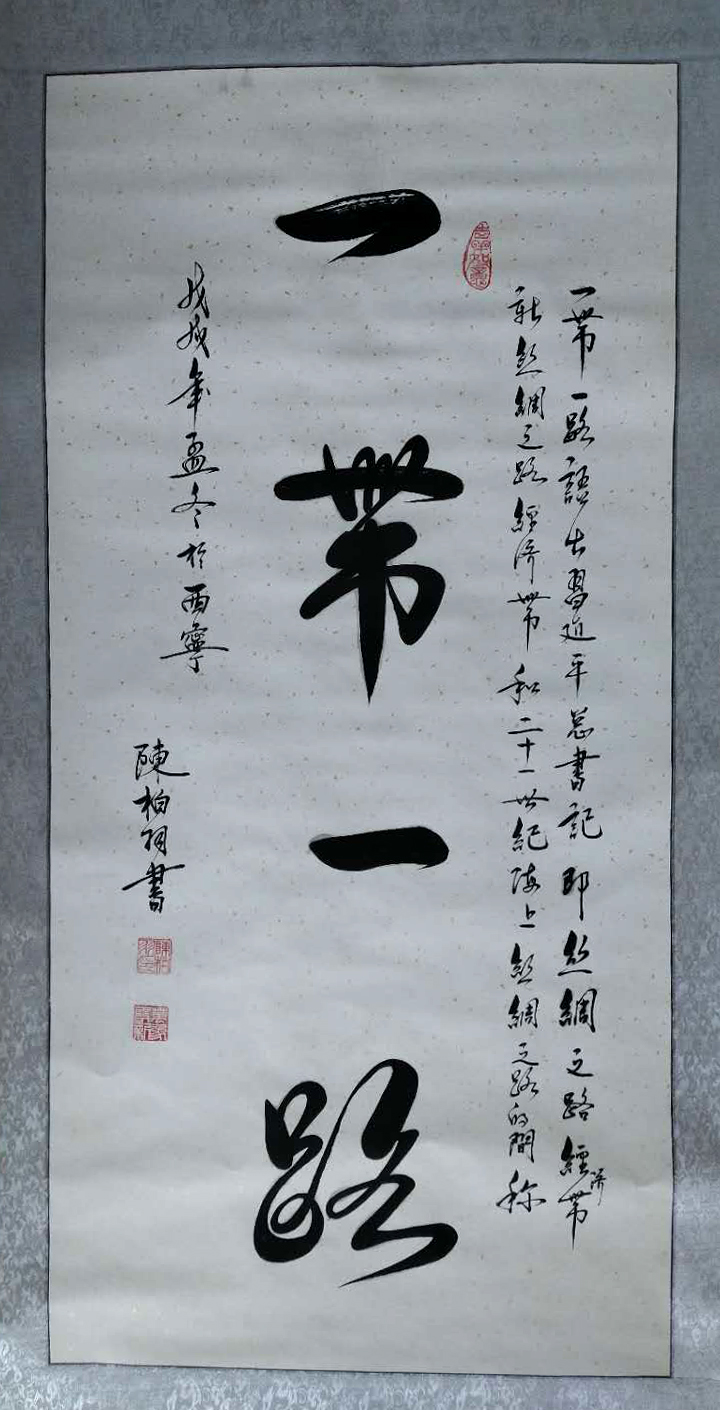 一帶一路語出習近平总書記即丝綢之路經濟帶
新丝綢之路經濟帶和二十一世紀海上丝綢之路的間称
一帶一路
戊戌年孟冬於西寧
陳柏羽書